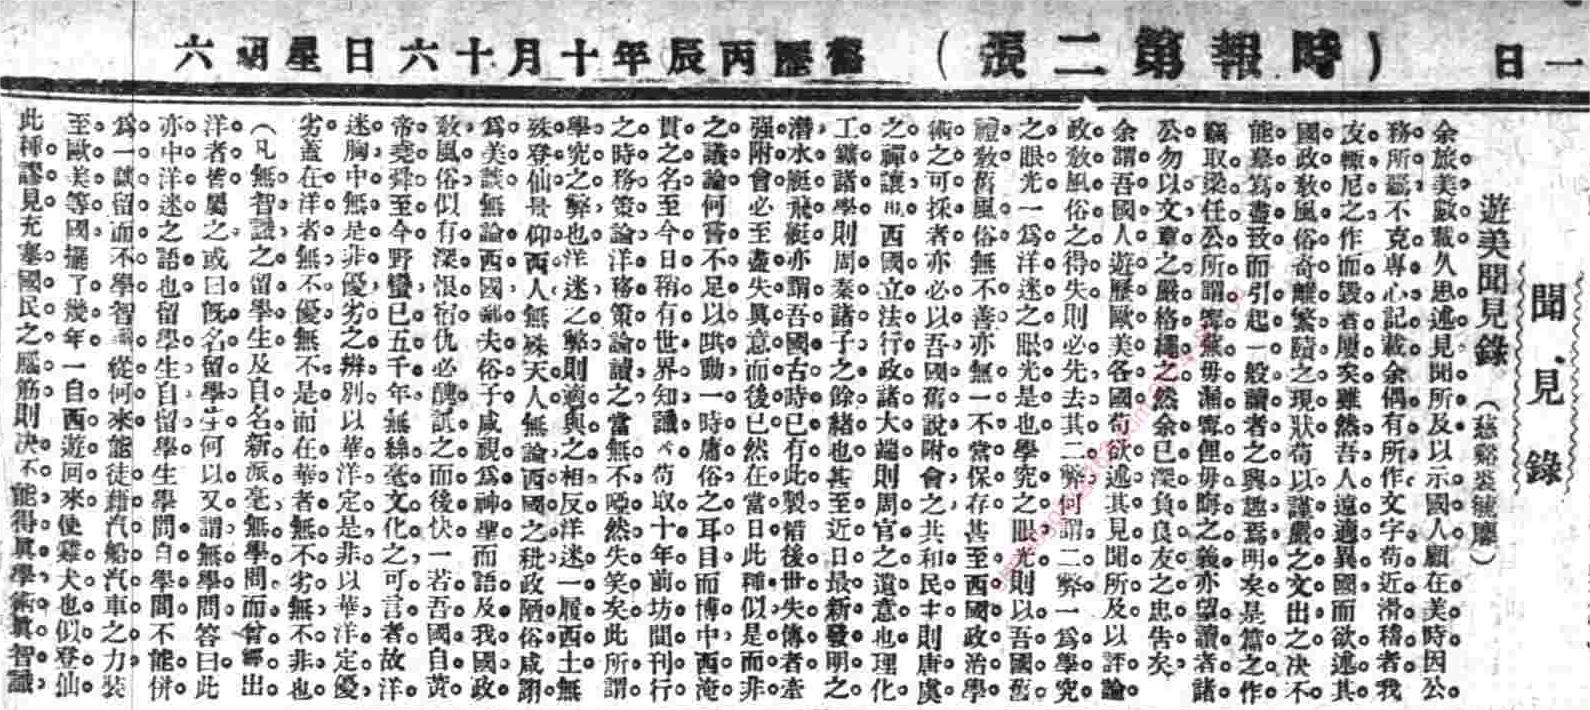 一日
（時報第二張）
舊歷丙辰年十月十六日星期六
聞見錄
遊美聞見錄（慈谿裘毓麐）
余旅美數載久思述見聞所及以示國人顧在美時因公
務所羈不克專心記載余偶有所作文字苟近滑稽者我
友輒尼之作而毀者屢矣雖然吾人遠適異國而欲述其
國政教風俗奇離繁賾之現狀苟以謹嚴之文出之决不
能摹寫盡致而引起一般讀者之興趣焉明矣是篇之作
竊取梁任公所謂寧蕪毋漏寧俚毋晦之義亦望讀者諸
公勿以文章之嚴格繩之然余已深負良友之忠告矣
余謂吾國人遊歷歐美各國苟欲述其見聞所及以評論
政教風俗之得失則必先去其二弊何謂二弊一爲學究
之眼光一爲洋迷之眼光是也學究之眼光則以吾國舊
禮教舊風俗無不善亦無一不當保存甚至西國政治學
術之可採者亦必以吾國舊說附會之共和民主則唐虞
之禪讓也西國立法行政諸大端則周官之遺意也理化
工鑛諸學則周秦諸子之餘緒也甚至近日最新發明之
潛水艇飛艇亦謂吾國古時已有此製惜後世失傳者牽
强附會必至盡失眞意而後已然在當日此種似是而非
之議論何嘗不足以鬨動一時庸俗之耳目而博中西淹
貫之名至今日稍有世界知識 苟取十年前坊間刊行
之時務策論洋務策論讀之當無不啞然失笑矣此所謂
學究之弊也洋迷之弊則適與之相反洋迷一履西土無
殊登仙景仰西人無殊天人無論西國之秕政陋俗咸詡
爲美談無論西國 夫俗子咸視爲神聖而語及我國政
敎風俗似有深恨宿仇必醜詆之而後快一若吾國自黃
帝堯舜至今野蠻已五千年無絲毫文化之可言者故洋
迷胸中無是非優劣之辨別以華洋定是非以華洋定優
劣蓋在洋者無不優無不是而在華者無不劣無不非也
（凡無智識之留學生及自名新派毫無學問而曾 出
洋者皆屬之或曰旣名留學生何以又謂無學問答曰此
亦中洋迷之語也留學生自留學生學問自學問不能併
爲一談留而不學智 從何來能徒藉汽船汽車之力裝
至歐美等國擺了幾年一自西遊回來便雞犬也似登仙
此種謬見充塞國民之腦筋則决不能得眞學術眞智識